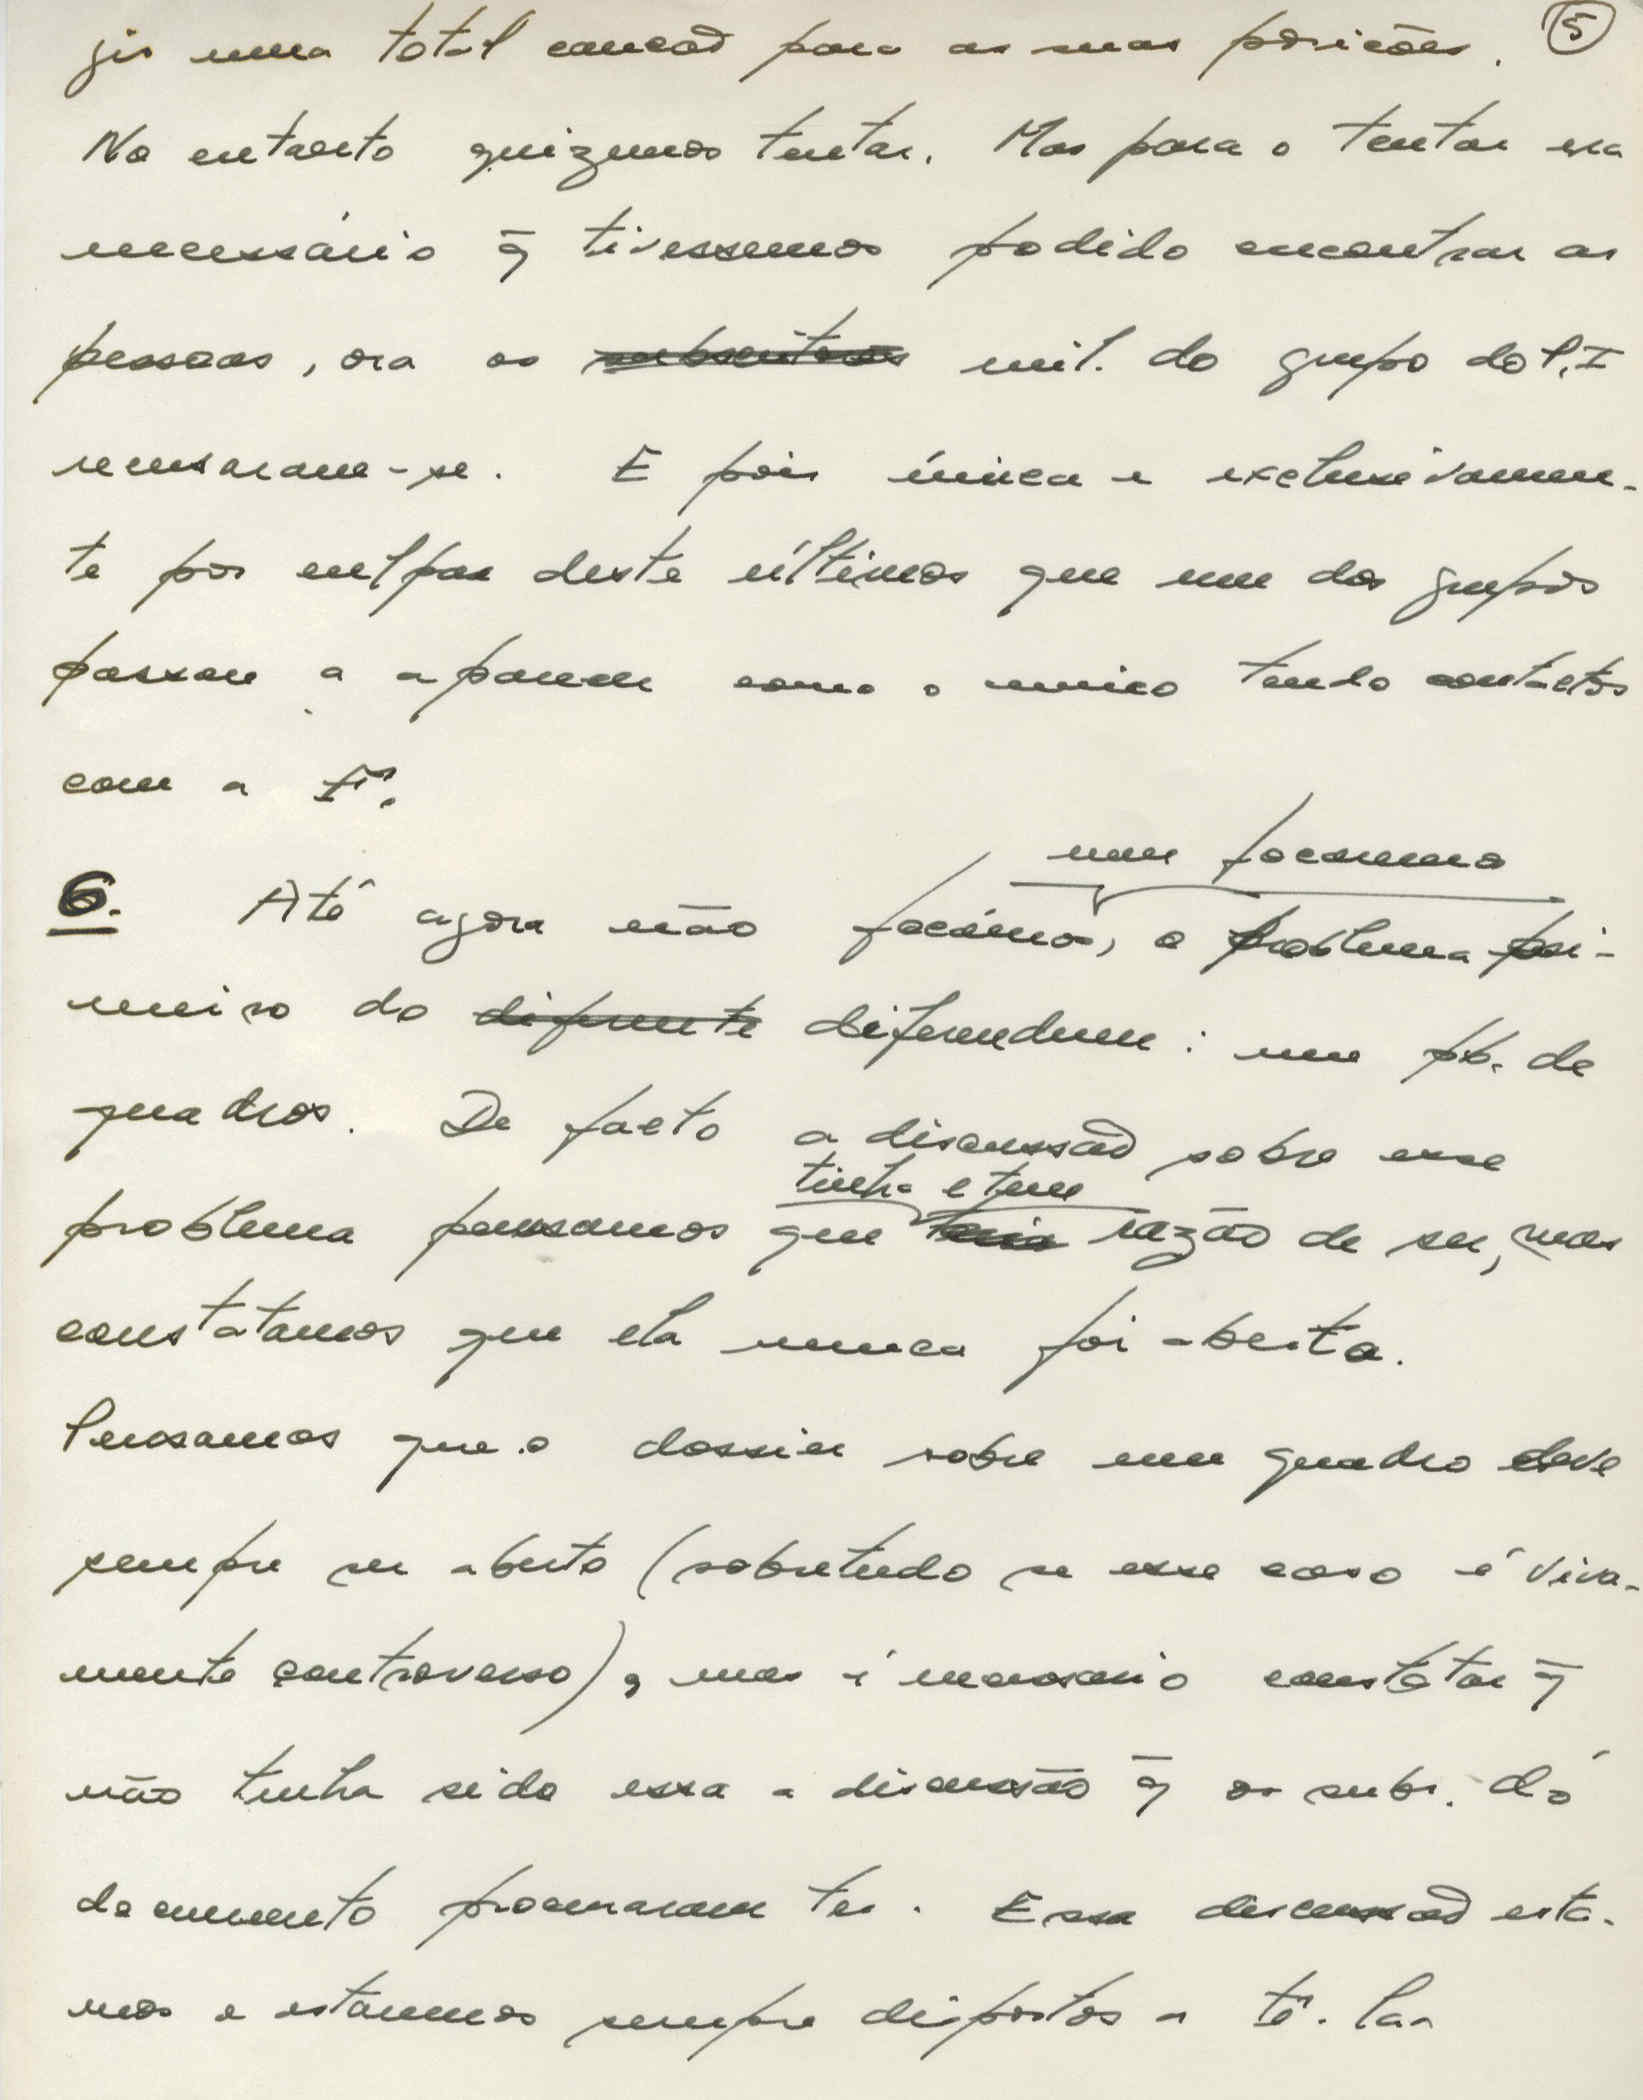 gir uma total cancão para as suas posições. 5
No entanto quizemos tentar. Mas para o tentar era
necessário q̄ tivessemos podido encontrar as
pessoas, ora os subscritores mil. do grupo do P.I
recusaram-se. E pois única e exclusivamen-
te por culpa deste últimos que um dos grupos
passou a aparecer como o unico tendo contactos
com a Iª.
nem focaremos
6. Até agora não focámos, o problema pri-
meiro do diferente diferendum: um pb. de
quadros. De facto a discussão sobre esse
tinha e tem
problema pensamos que teria razão de ser, mas
constatamos que ela nunca foi aberta.
Pensamos que o dossier sobre um quadro deve
sempre ser aberto (sobretudo se esse caso é viva-
mente controverso), mas é necessario constatar q̄
não tenha sido essa a discussão q̄ os subs. dó
documento procuraram ter. Essa discussão está-
mos e estaremos sempre dispostos a tê-la